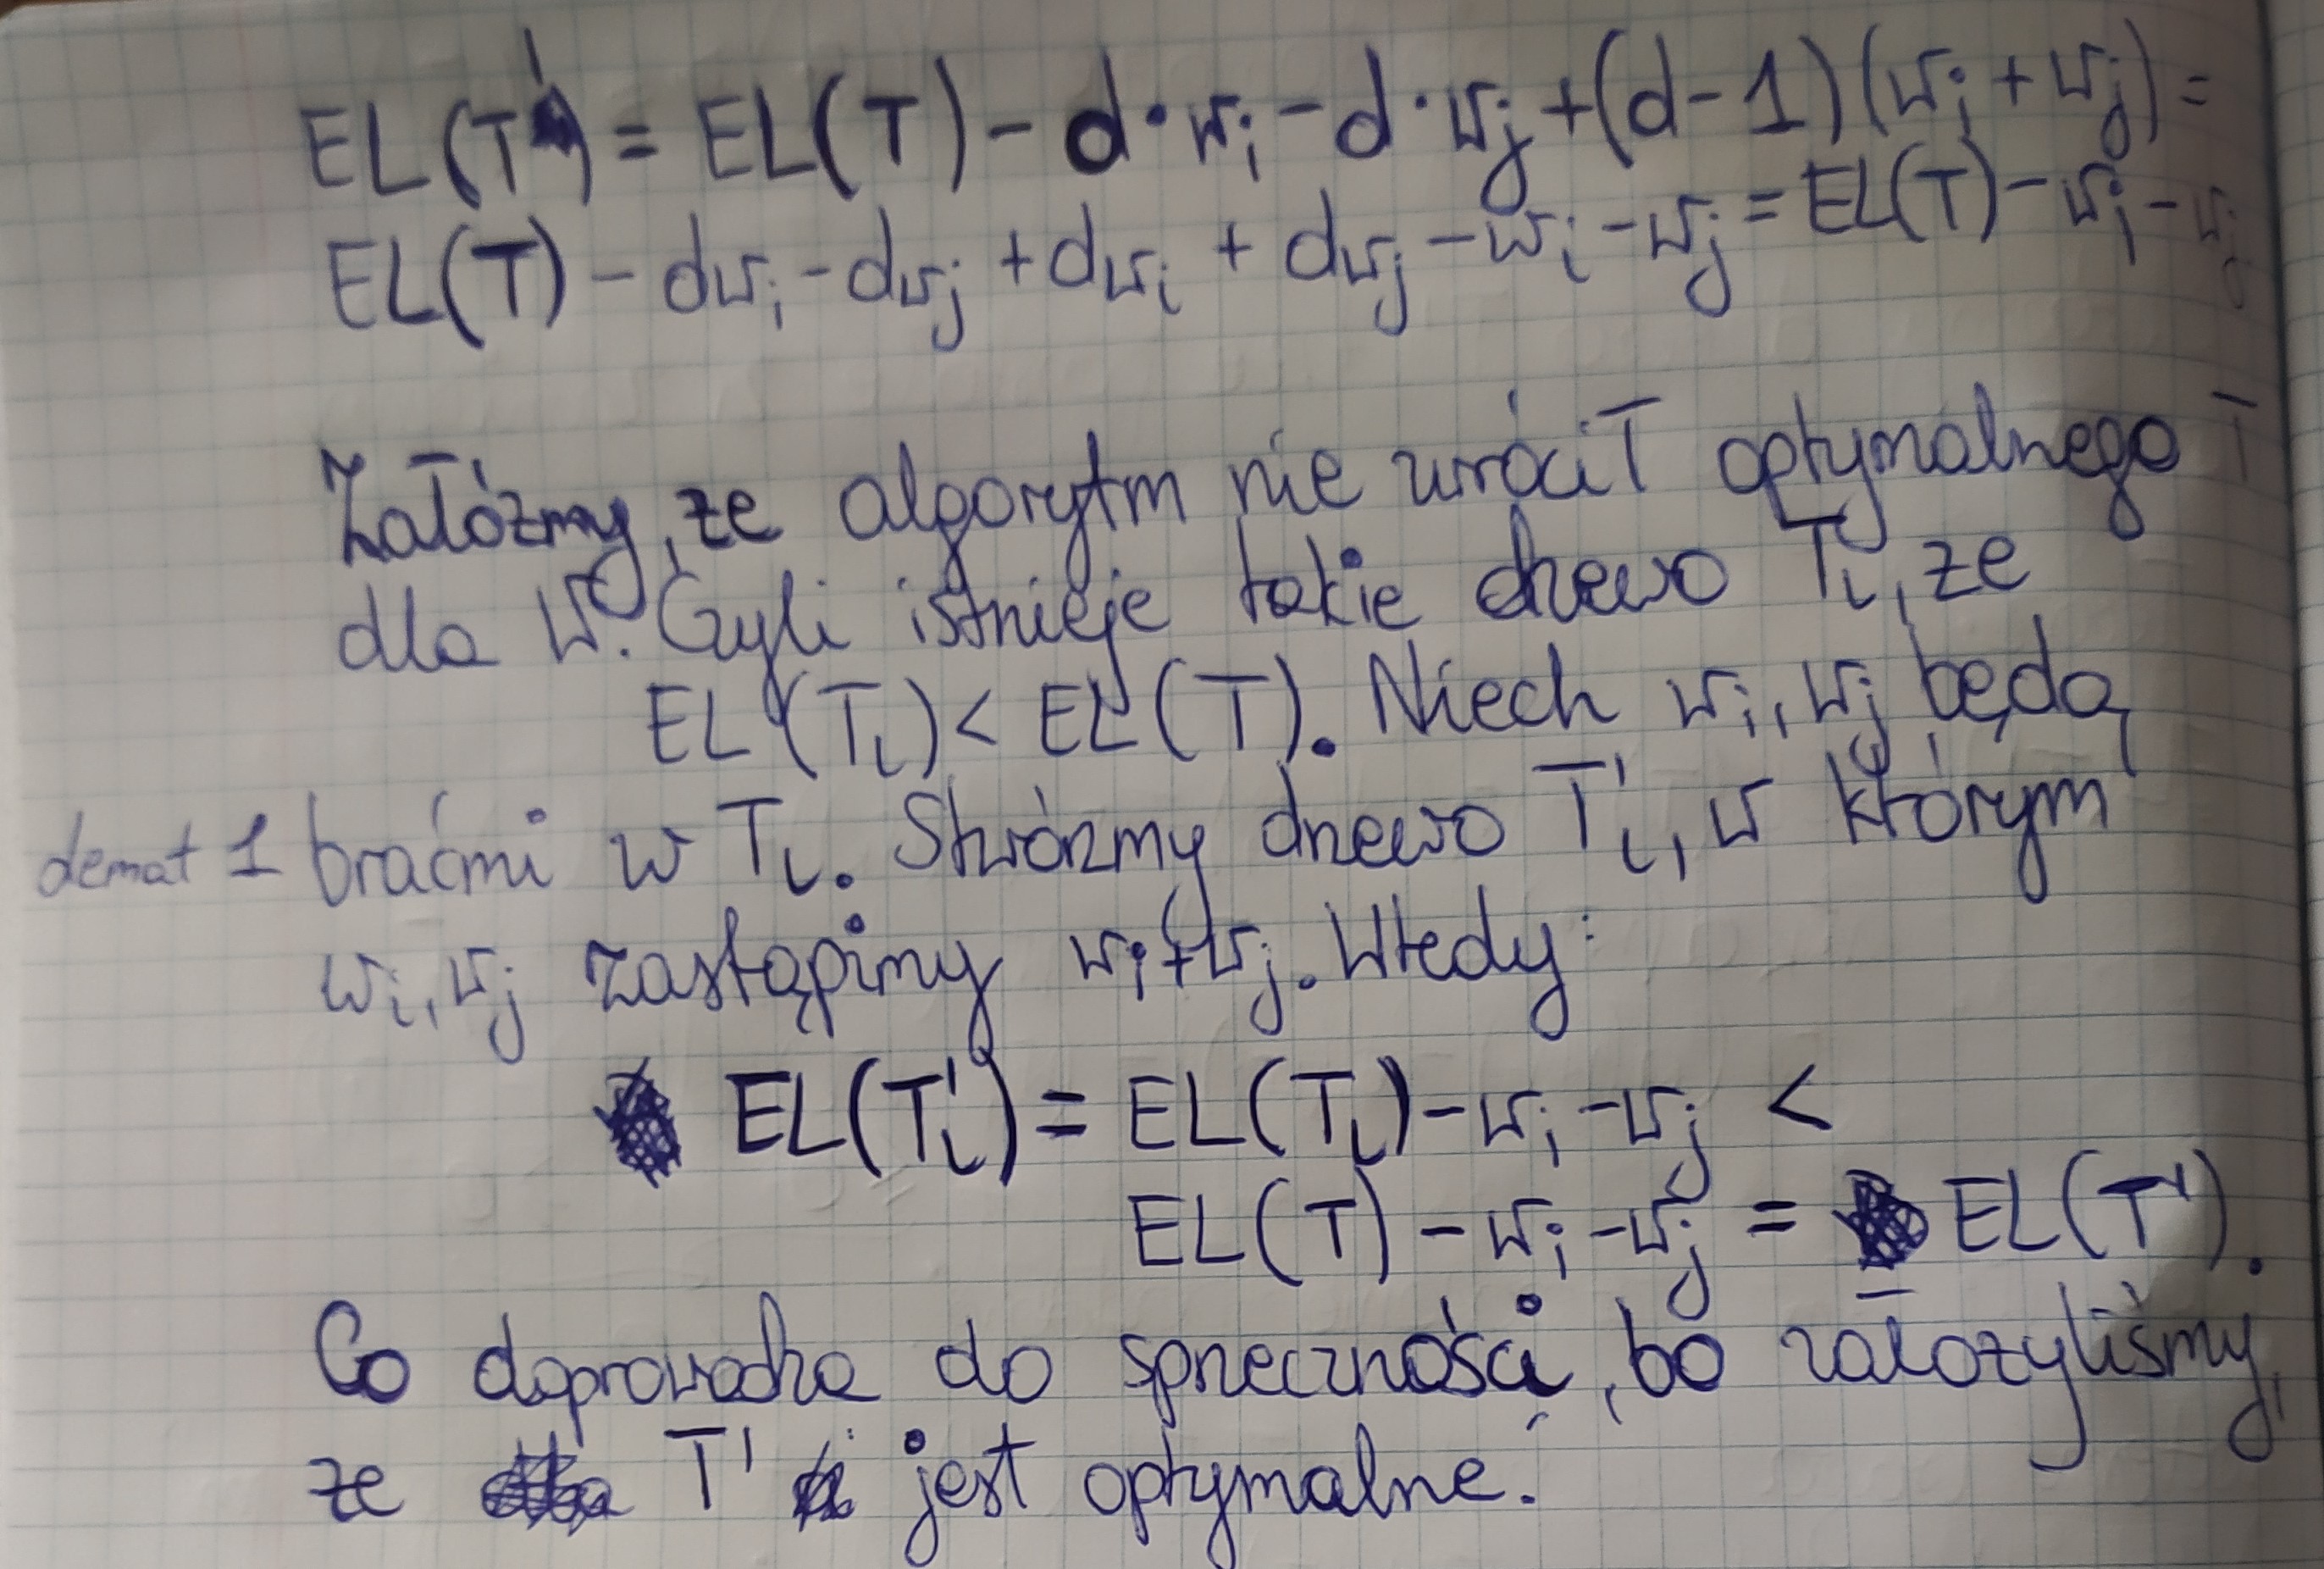 EL(T') = EL(T) - d·wᵢ - d·wⱼ + (d-1)(wᵢ + wⱼ) =
EL(T) - dwᵢ - dwⱼ + dwᵢ + dwⱼ - wᵢ - wⱼ = EL(T) - wᵢ - wⱼ
Załóżmy, że algorytm nie wrócił optymalnego T
dla W. Czyli istnieje takie drzewo Tᵢ, że
EL(Tᵢ) < EL(T). Niech wᵢ, wⱼ będą
lemat 1 braćmi w Tᵢ. Stwórzmy drzewo Tᵢ', w którym
wᵢ, wⱼ zastąpimy wᵢ+wⱼ. Wtedy:
EL(Tᵢ') = EL(Tᵢ) - wᵢ - wⱼ <
EL(T) - wᵢ - wⱼ = EL(T').
Co doprowadza do sprzeczności, bo założyliśmy,
że T' jest optymalne.